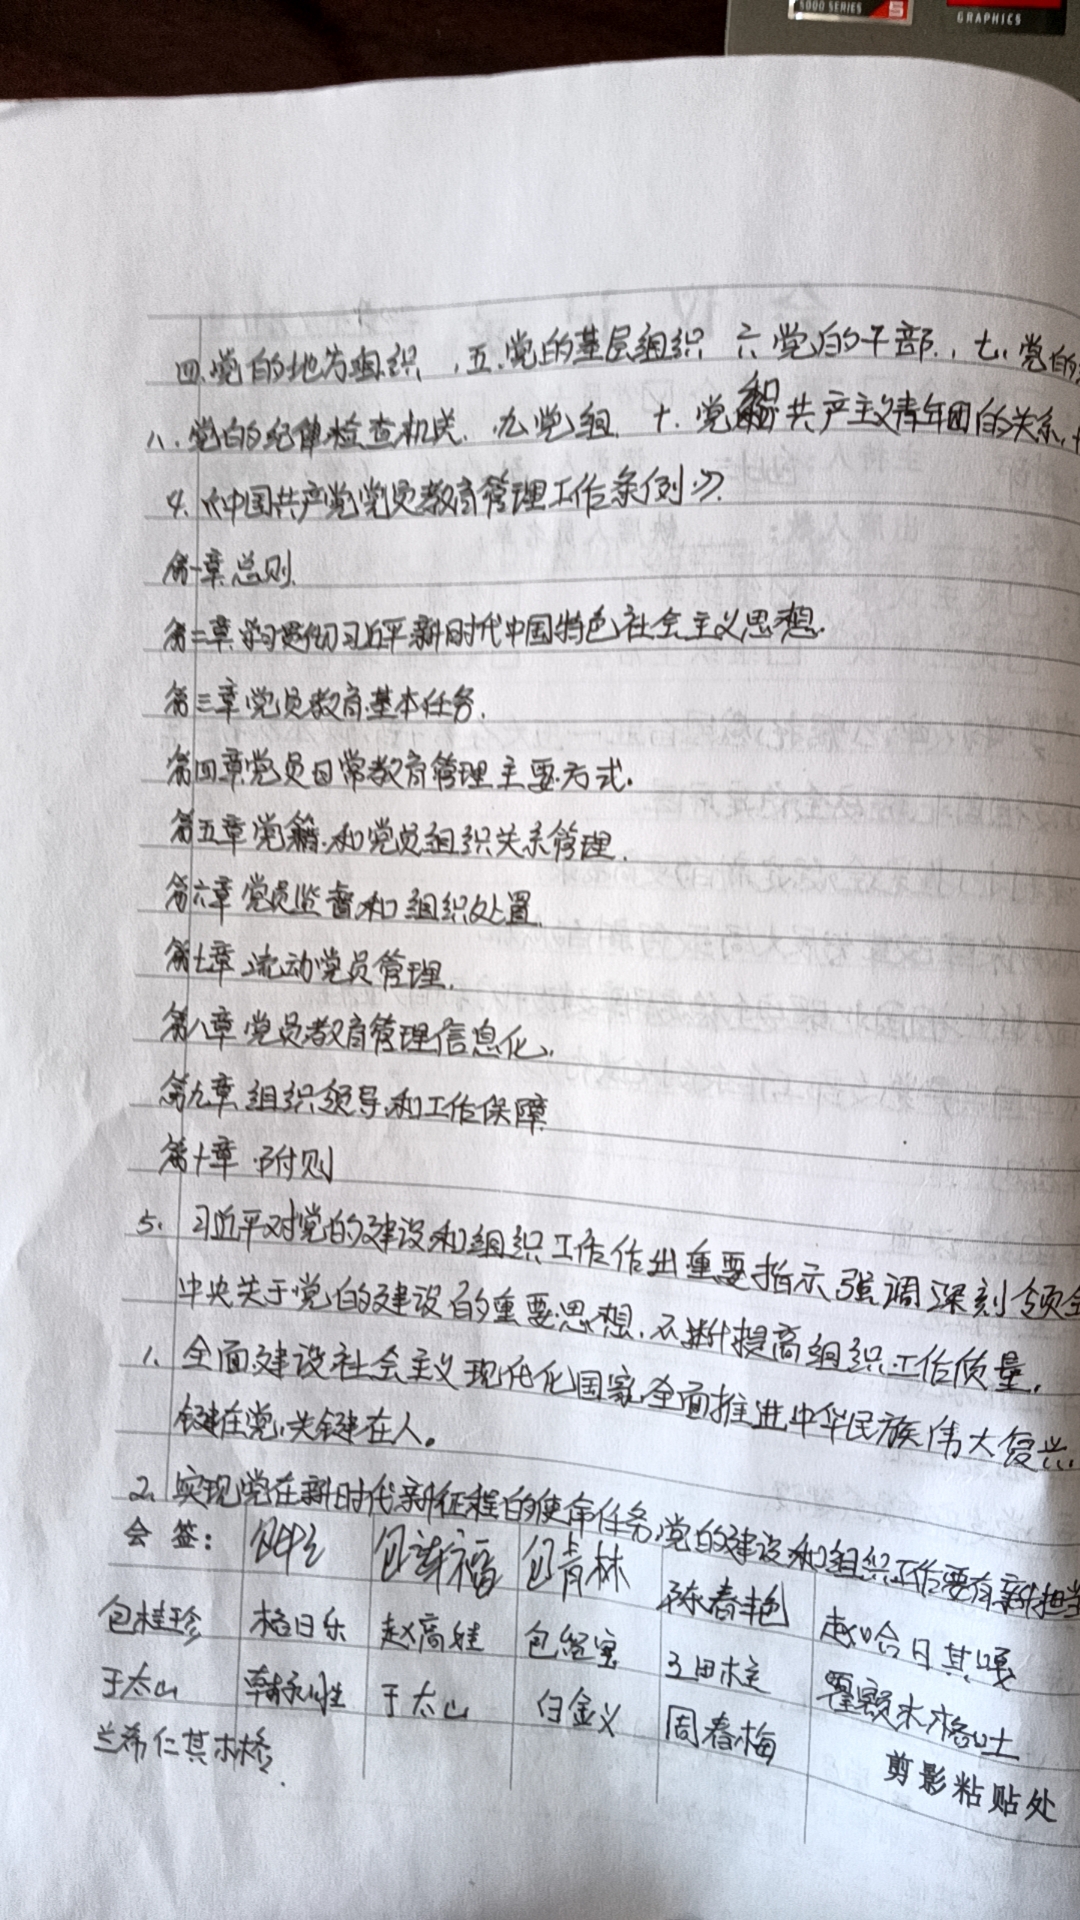 5000 SERIES 5
GRAPHICS
四.党的地方组织、五.党的基层组织 六党的干部、七、党的
八、党的纪律检查机关、九党组、十、党和共产主义青年团的关系、十
4.《中国共产党党员教育管理工作条例》.
第一章总则
第二章学习贯彻习近平新时代中国特色社会主义思想.
第三章党员教育基本任务.
第四章党员日常教育管理主要方式.
第五章党籍和党员组织关系管理.
第六章党员监督和组织处置
第七章流动党员管理.
第八章党员教育管理信息化.
第九章组织领导和工作保障
第十章附则
5. 习近平对党的建设和组织工作作出重要指示强调深刻领会
中央关于党的建设的重要思想.不断提高组织工作质量.
1. 全面建设社会主义现代化国家全面推进中华民族伟大复兴.
键在党,关键在人。
2. 实现党在新时代新征程的使命任务,党的建设和组织工作要有新担当
会 签: 包青林 陈春艳 赵哈日其嘎
包桂珍 格日乐 赵高娃 包经宝 王田柱
于太山 韩永胜 于太山 白金义 周春梅
兰希仁其木格.
剪影粘贴处